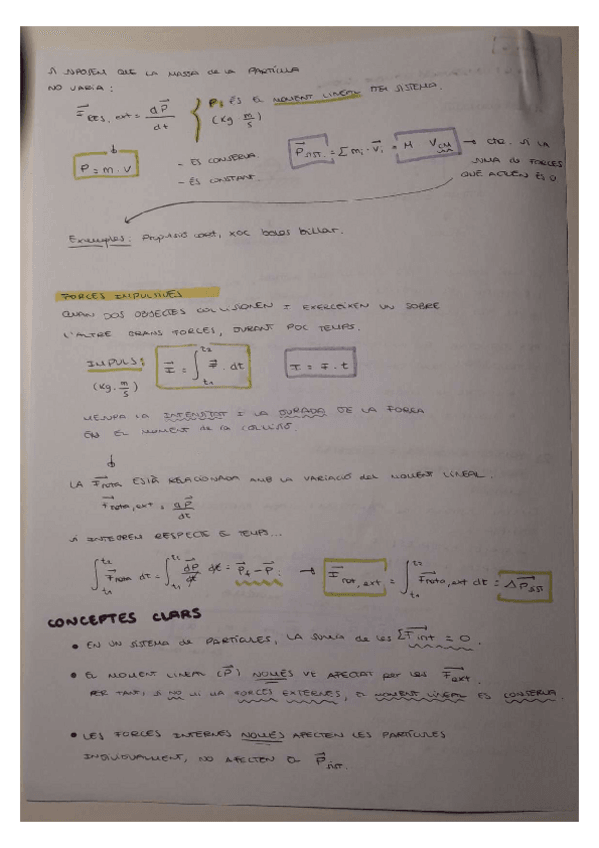 SI SUPOSEM QUE LA MASSA DE LA PARTÍCULA
NO VARIA:
F⃗ RES, ext = dP⃗/dt
P: ÉS EL MOMENT LINEAL DEL SISTEMA.
(Kg m/s)
P = m · v
- ES CONSERVA
- ÉS CONSTANT.
P⃗ SIST. = Σ mi · v⃗i = M V CM → cte. SI LA
SUMA DE FORCES
QUE ACTUEN ÉS 0.
Exemples: Propulsió coet, xoc boles billar.
FORCES IMPULSIVES
QUAN DOS OBJECTES COL·LISIONEN I EXERCEIXEN UN SOBRE
L'ALTRE GRANS FORCES, DURANT POC TEMPS.
IMPULS: I⃗ = ∫ t1 t2 F⃗ · dt
I = F · t
(Kg · m/s)
MESURA LA INTENSITAT I LA DURADA DE LA FORÇA
EN EL MOMENT de la COL·LISIÓ.
LA F⃗ neta ESTÀ RELACIONADA AMB LA VARIACIÓ del MOMENT LINEAL.
F⃗ neta, ext = dP⃗/dt
SI INTEGREM RESPECTE EL TEMPS...
∫ t1 t2 F⃗ neta dt = ∫ t1 t2 dP⃗/dt dt = P⃗f - P⃗i → I⃗ net, ext = ∫ t1 t2 F⃗ neta, ext dt = ΔP⃗ SIST
CONCEPTES CLARS
• EN UN SISTEMA de PARTÍCULES, LA SUMA de les ΣF⃗ int = 0.
• EL MOMENT LINEAL (P⃗) NOMÉS VE AFECTAT per les F⃗ ext.
PER TANT, SI NO HI HA FORCES EXTERNES, EL MOMENT LINEAL ES CONSERVA.
• LES FORCES INTERNES NOMÉS AFECTEN LES PARTÍCULES
INDIVIDUALMENT, NO AFECTEN A P⃗ SIST.